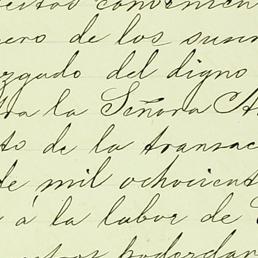 estos convenien
ero de los suscri
zgado del digno
tra la Señora A
to de la transac
de mil ochocient
á la labor de